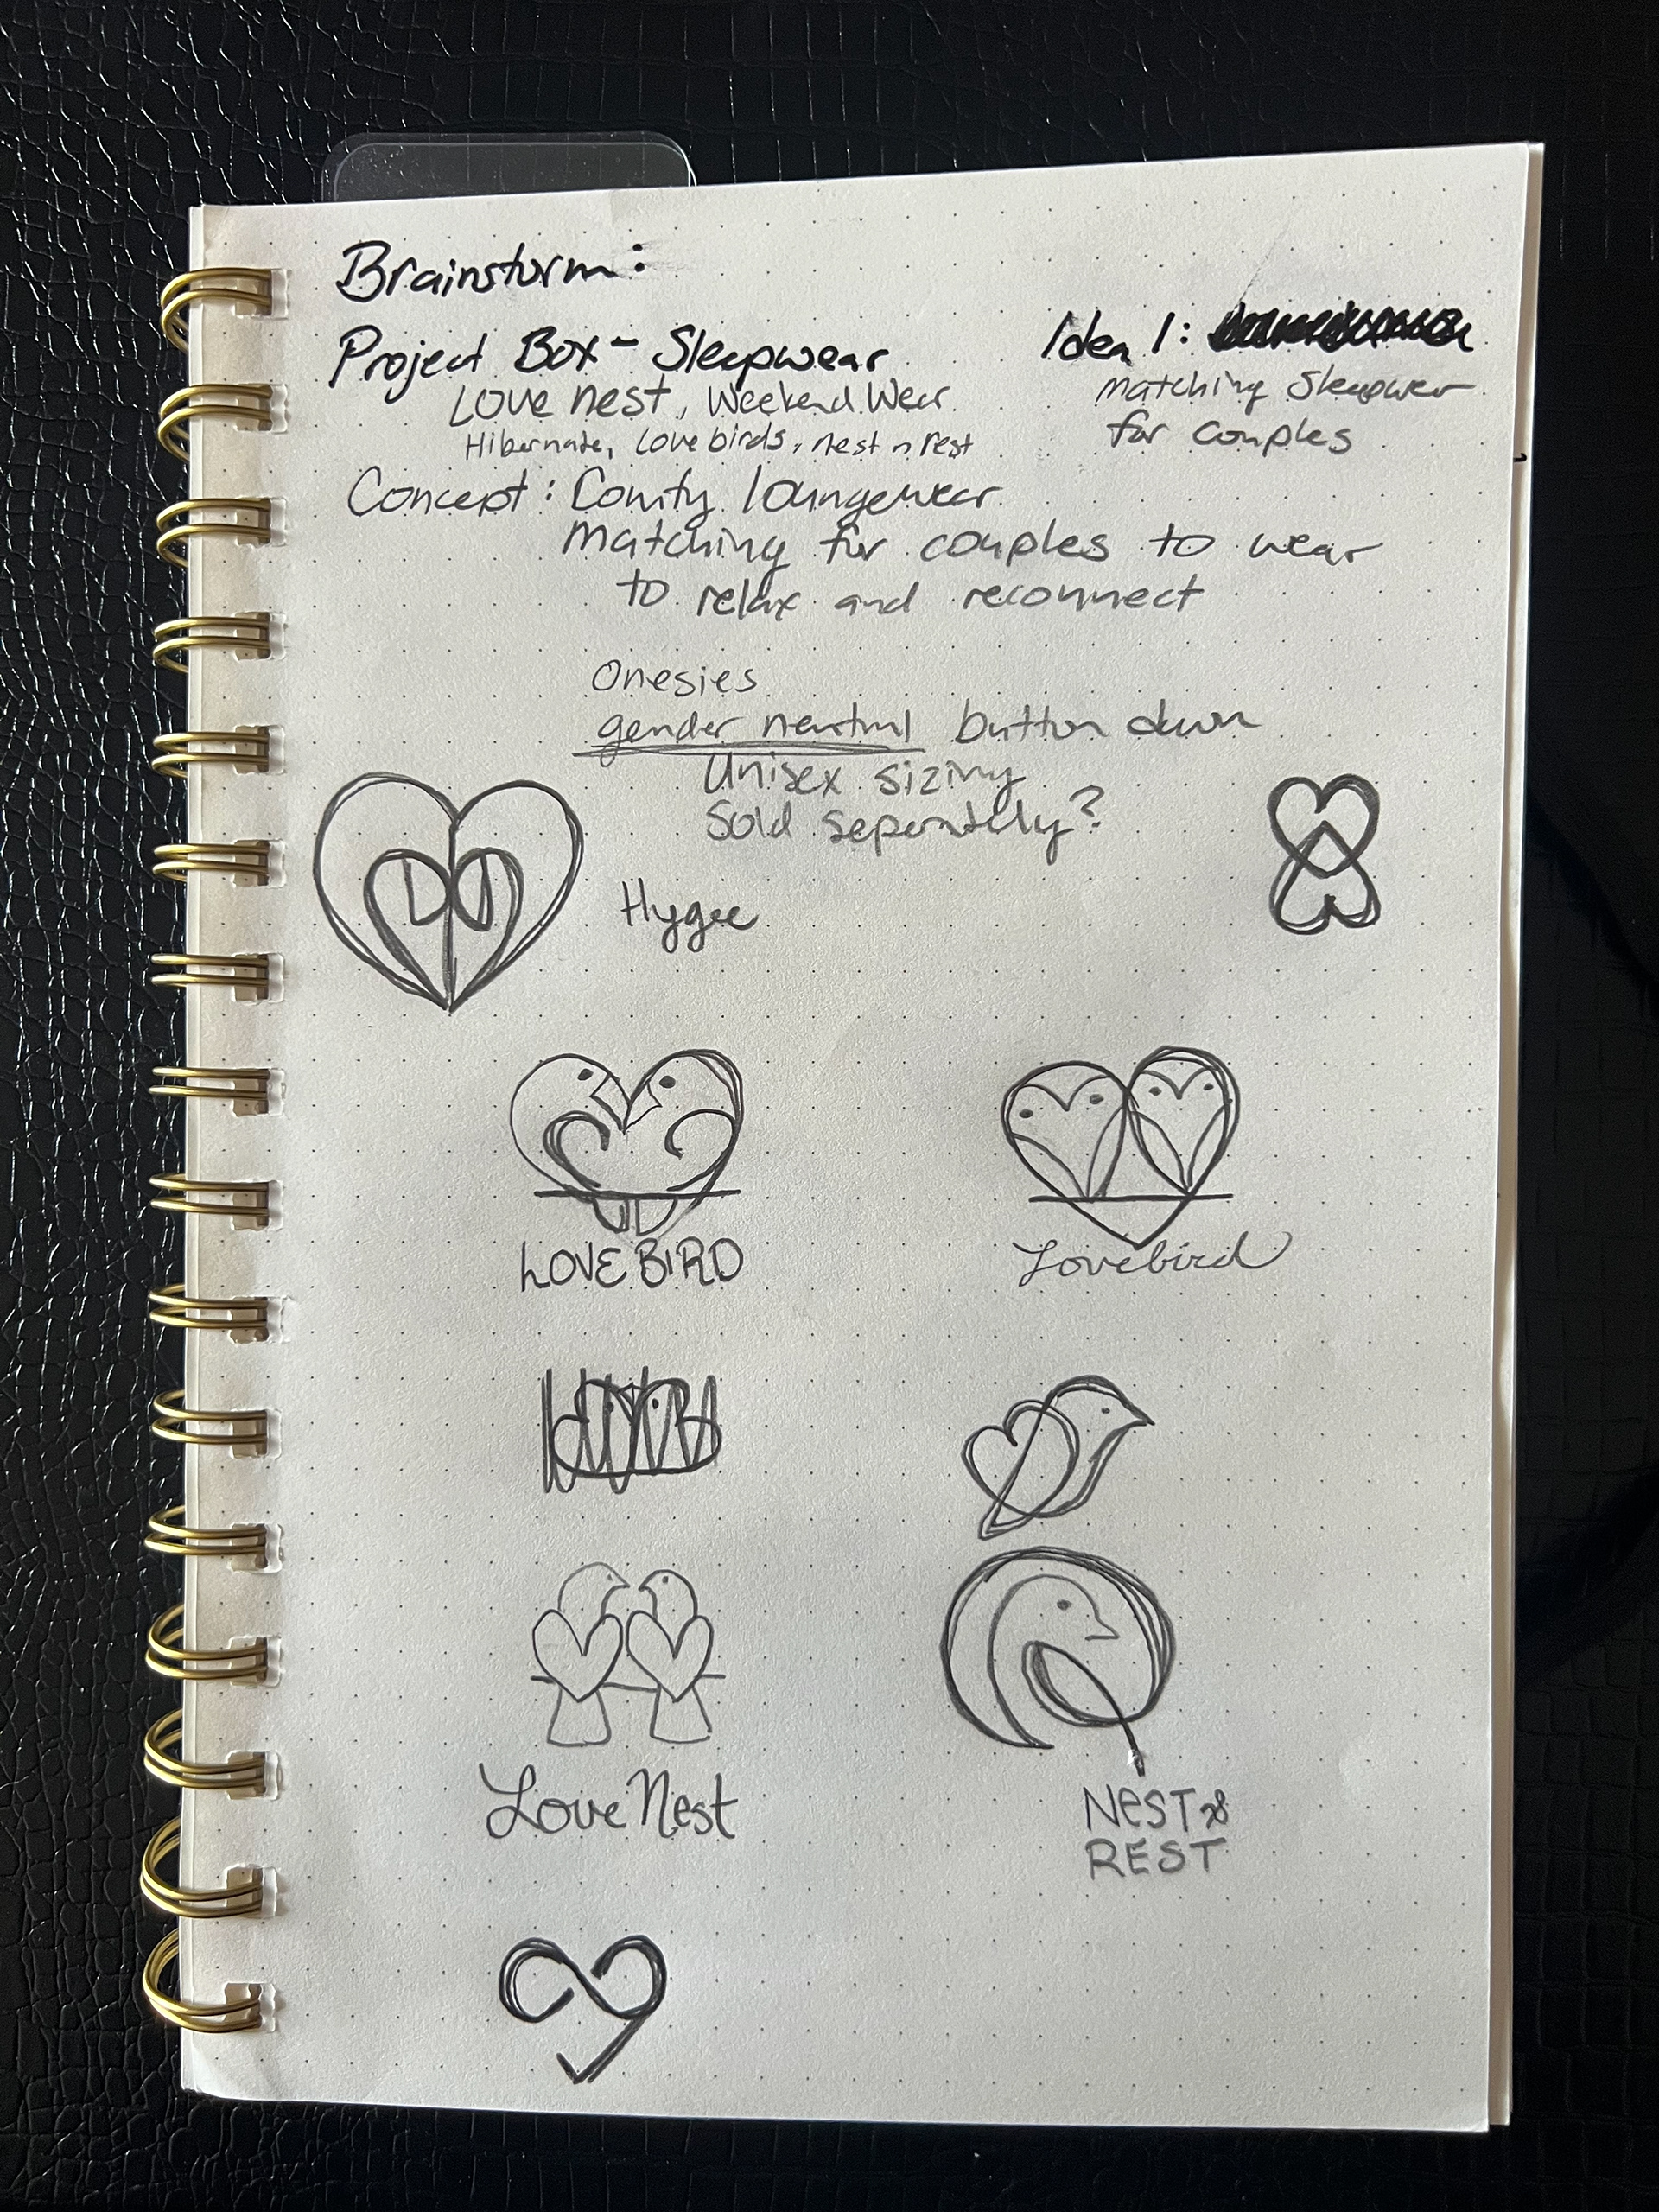 Brainstorm:
Project Box - Sleepwear
Idea 1:
Love nest, Weekend Wear
matching Sleepwer
Hibernate, love birds, nest n rest
for couples
Concept: Comfy loungewear
matching for couples to wear
to relax and reconnect
Onesies
gender neutral button down
Unisex sizing
Sold seperately?
Hygee
LOVE BIRD
Lovebird
Love Nest
NEST &
REST